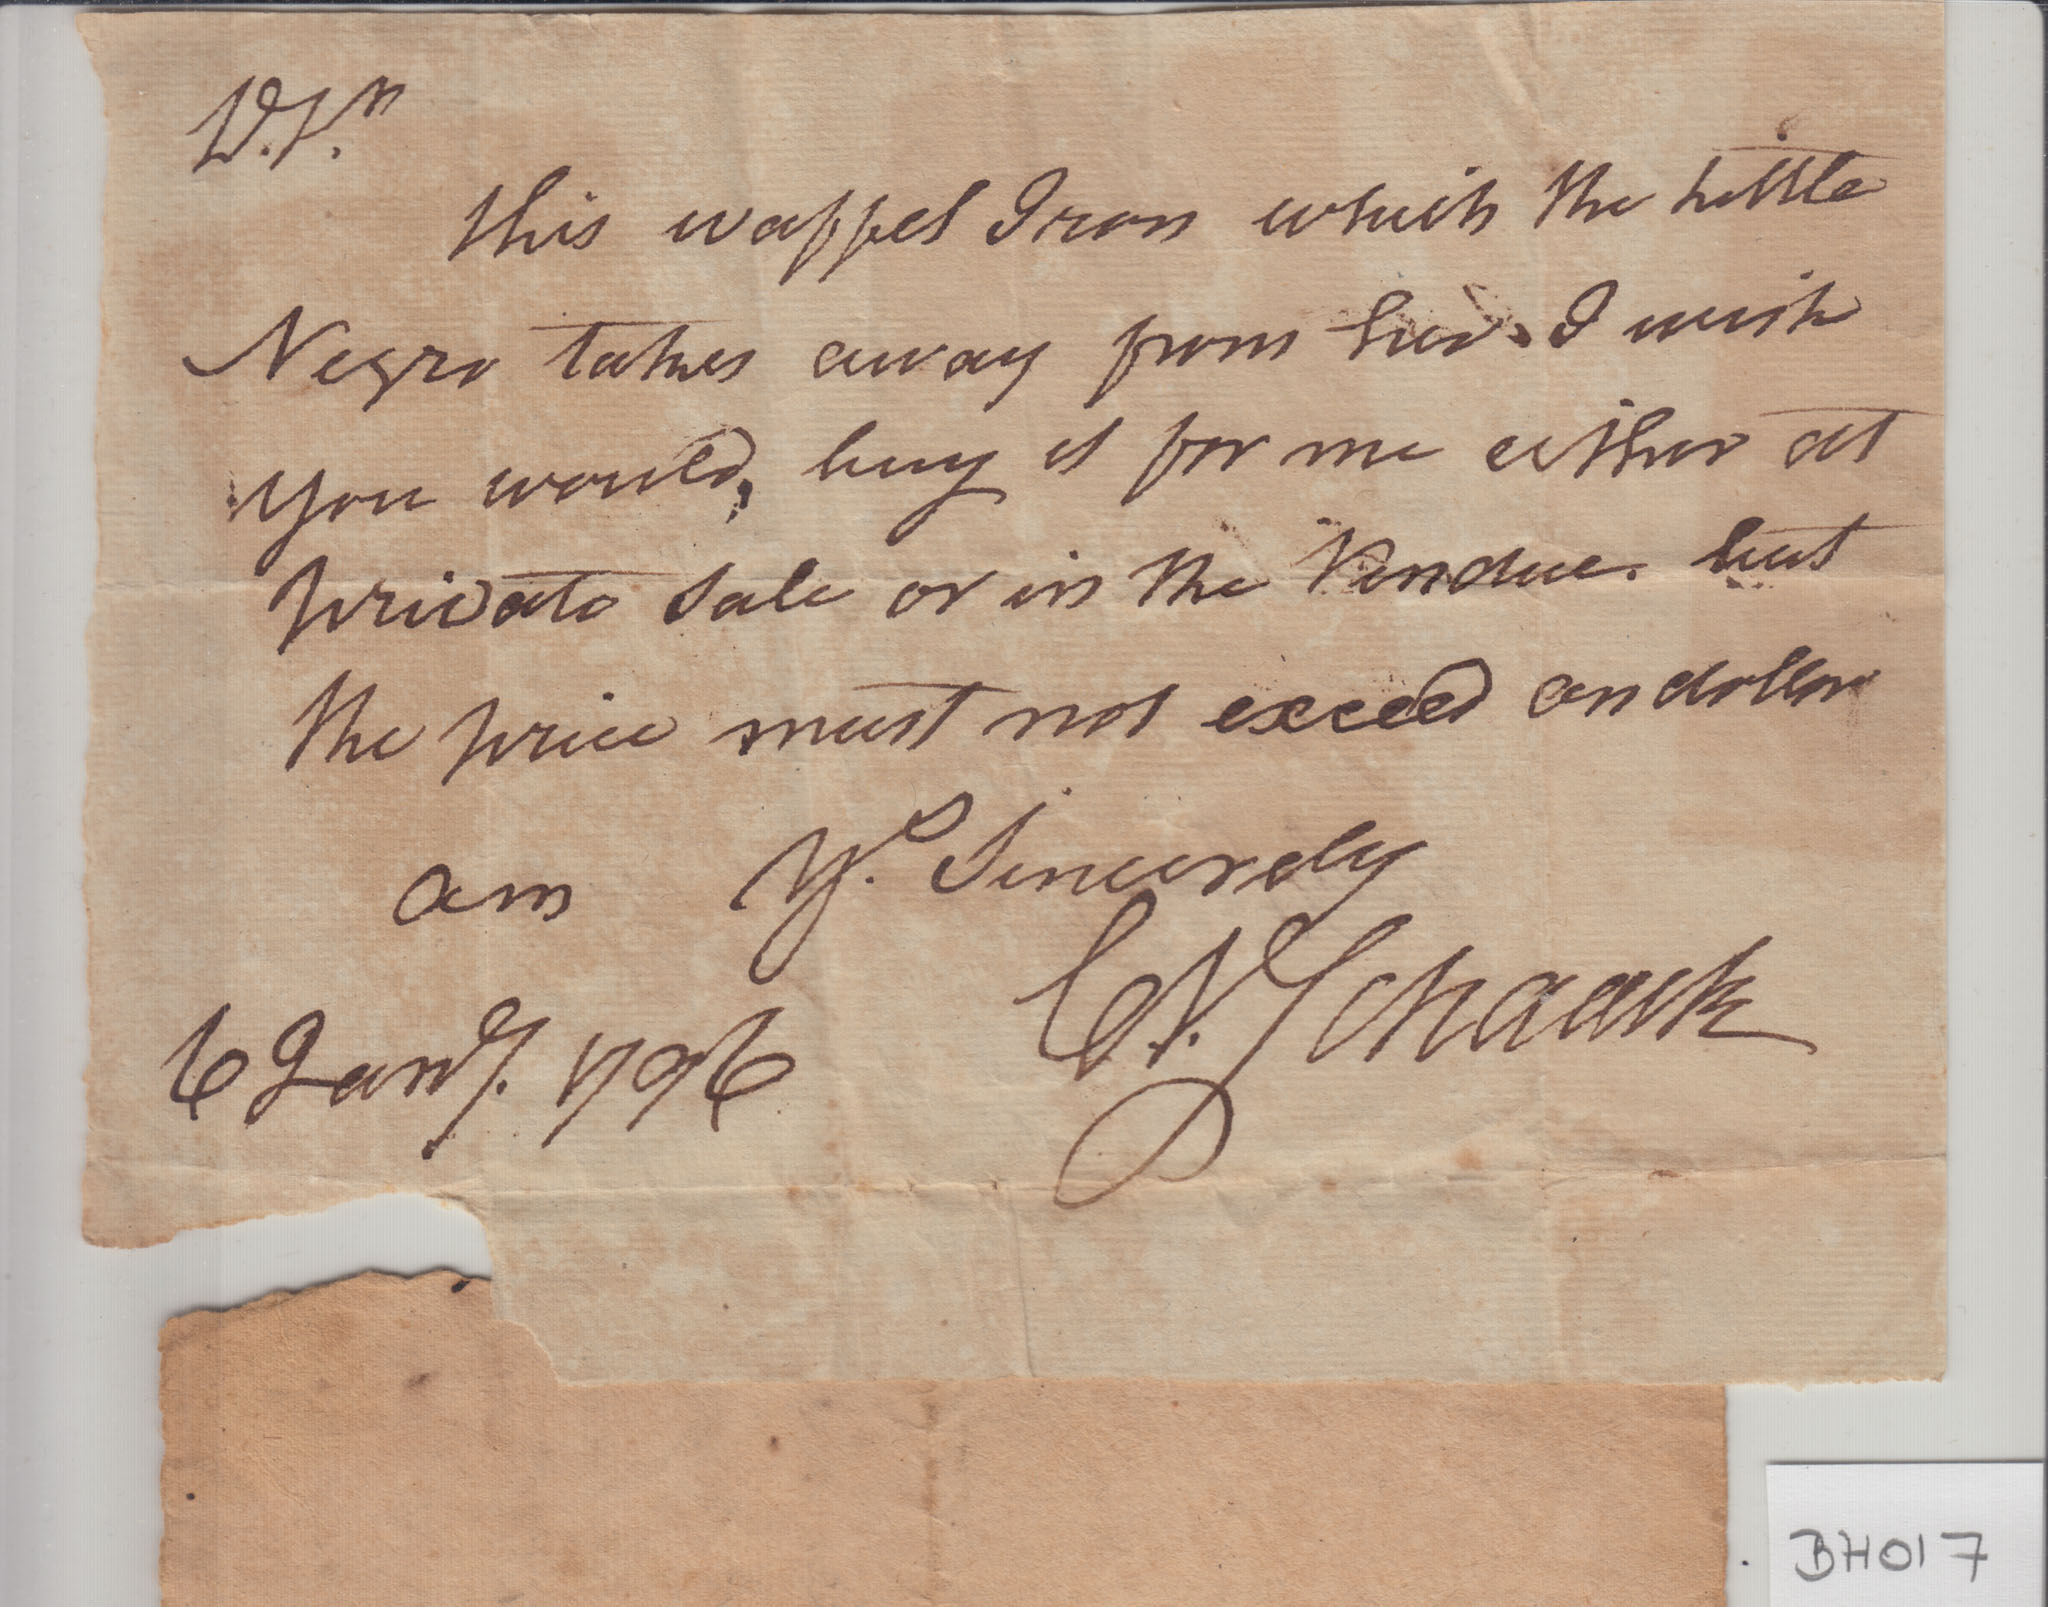 D. Sr
this waffel Iron which the little
Negro takes away from here I wish
you would, buy it for me either at
private sale or in the Vendue. but
the price must not exceed on dollar
am Ys. Sincerely
C. V. Schaack
6 Jany. 1796
BH017